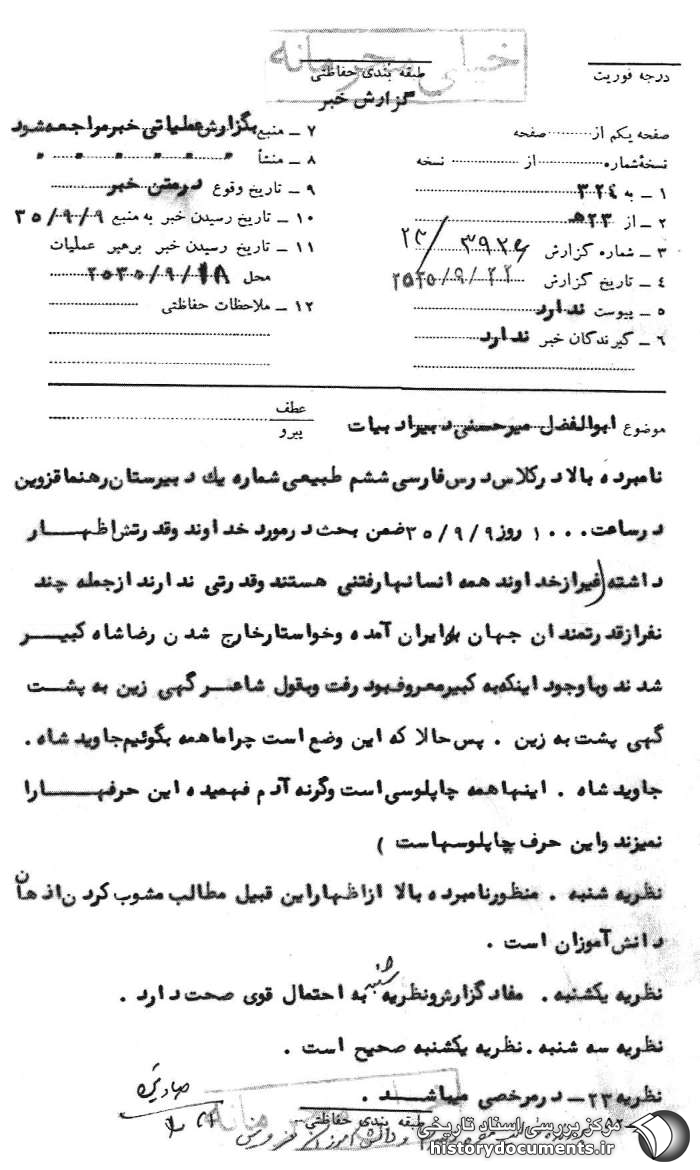 خیلی محرمانه
درجه فوریت
طبقه بندی حفاظتی
گزارش خبر
صفحه یکم از............ صفحه
نسخهٔ شماره............ از ............ نسخه
۱ ــ به ۳۲٤
۲ ــ از ۲۳ه
۳ ــ شماره گزارش
٤ ــ تاریخ گزارش ۲۵۳۵/۹/۲۲
۵ ــ پیوست ندارد
۶ ــ گیرندگان خبر ندارد
۷ ــ منبع بگزارش عملیاتی خبر مراجعه شود
۸ ــ منشأ " " " " " "
۹ ــ تاریخ وقوع درمتن خبر
۱۰ ــ تاریخ رسیدن خبر به منبع ۳۵/۹/۹
۱۱ ــ تاریخ رسیدن خبر برهبر عملیات
محل ۲۵۳۵/۹/۱۸
۱۲ ــ ملاحظات حفاظتی
عطف
پیرو
موضوع ابوالفضل میرحسنی دبیر ادبیات
نامبرده بالا درکلاس درس فارسی ششم طبیعی شماره یك دبیرستان رهنما قزوین
درساعت ۱۰۰۰ روز ۳۵/۹/۹ ضمن بحث درمورد خداوند وقدرتش اظهـــار
داشته (غیرازخداوند همه انسانها رفتنی هستند وقدرتی ندارند ازجمله چند
نفرازقدرتمندان جهان بایران آمده وخواستارخارج شدن رضاشاه کبیـــر
شدند وباوجود اینکه به کبیرمعروف بود رفت وبقول شاعـــر گهی زین به پشـــت
گهی پشت به زین . پس حالا که این وضع است چراما همه بگوئیم جاوید شاه .
جاوید شاه . اینها همه چاپلوسی است وگرنه آدم فهمیده این حرفهـــارا
نمیزند واین حرف چاپلوسهاست )
نظریه شنبه . منظورنامبرده بالا ازاظهاراین قبیل مطالب مشوب کردن اذهان
دانش آموزان است .
نظریه یکشنبه . مفاد گزارش ونظریه شنبه به احتمال قوی صحت دارد .
نظریه سه شنبه . نظریه یکشنبه صحیح است .
نظریه ۲۳ــ درمرخصی میباشـــد .
طبقه بندی حفاظتی
خیلی محرمانه
مرکز بررسی اسناد تاریخی
historydocuments.ir